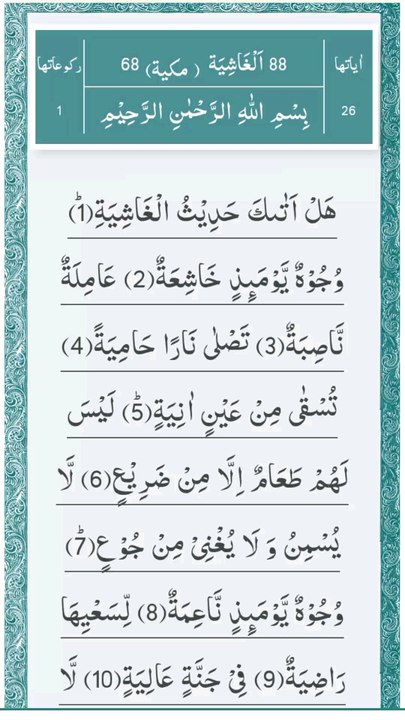 اٰیاتها 88 اَلْغَاشِیَة ( مكية ) 68 ركوعاتها
26 بِسْمِ اللّٰهِ الرَّحْمٰنِ الرَّحِیْمِ 1
هَلْ اَتٰىكَ حَدِیْثُ الْغَاشِیَةِؕ(1)
وُجُوْهٌ یَّوْمَىٕذٍ خَاشِعَةٌ(2) عَامِلَةٌ
نَّاصِبَةٌ(3) تَصْلٰى نَارًا حَامِیَةً(4)
تُسْقٰى مِنْ عَیْنٍ اٰنِیَةٍؕ(5) لَیْسَ
لَهُمْ طَعَامٌ اِلَّا مِنْ ضَرِیْعٍ(6) لَّا
یُسْمِنُ وَ لَا یُغْنِیْ مِنْ جُوْعٍؕ(7)
وُجُوْهٌ یَّوْمَىٕذٍ نَّاعِمَةٌ(8) لِّسَعْیِهَا
رَاضِیَةٌ(9) فِیْ جَنَّةٍ عَالِیَةٍ(10) لَّا